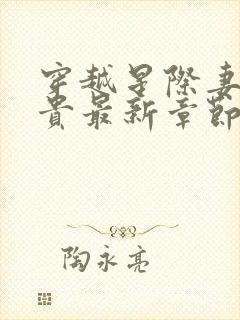 穿越星際妻
貴最新章節
陶永亮